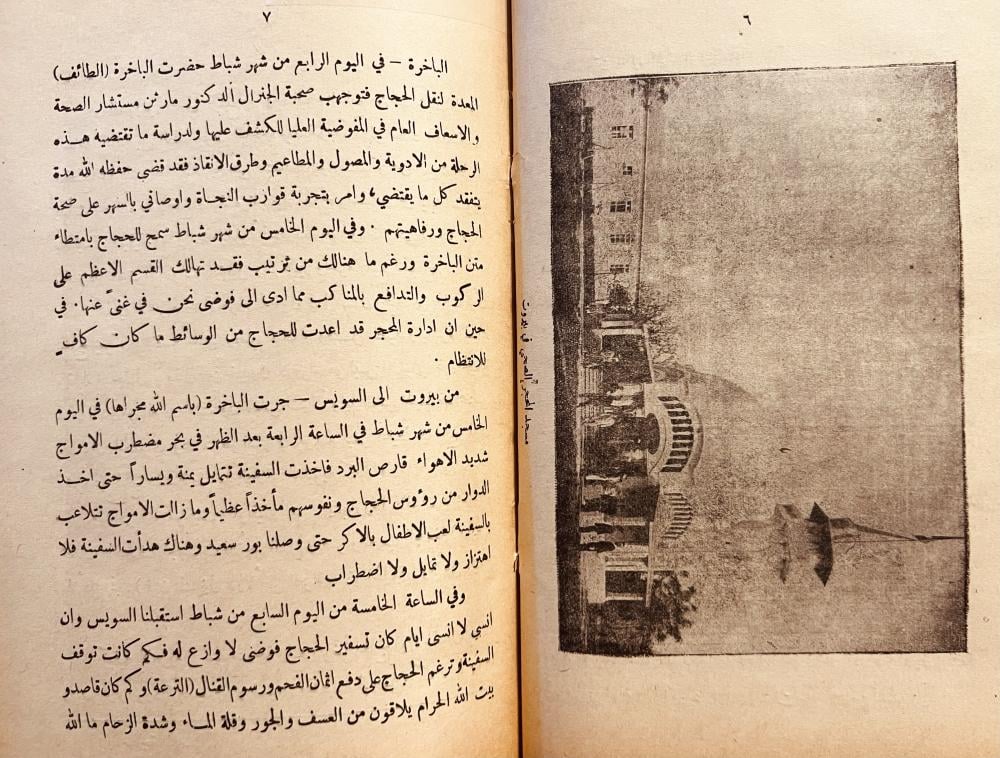 ٦
مسجد المحجر الصحي في بيروت
٧
الباخرة – في اليوم الرابع من شهر شباط حضرت الباخرة (الطائف)
المعدة لنقل الحجاج فتوجهب صحبة الجنرال الدكتور مارتن مستشار الصحة
والاسعاف العام في المفوضية العليا للكشف عليها ولدراسة ما تقتضيه هذه
الرحلة من الادوية والمصول والمطاعيم وطرق الانقاذ فقد قضى حفظه الله مدة
يتفقد كل ما يقتضي، وامر بتجربة قوارب النجاة واوصاني بالسهر على صحة
الحجاج ورفاهيتهم . وفي اليوم الخامس من شهر شباط سمح للحجاج بامتطاء
متن الباخرة ورغم ما هنالك من ترتيب فقد تهالك القسم الاعظم على
الركوب والتدافع بالمناكب مما ادى الى فوضى نحن في غنىً عنها. في
حين ان ادارة المحجر قد اعدت للحجاج من الوسائط ما كان كافٍ
للانتظام .
من بيروت الى السويس – جرت الباخرة (باسم الله مجراها) في اليوم
الخامس من شهر شباط في الساعة الرابعة بعد الظهر في بحر مضطرب الامواج
شديد الاهواء قارص البرد فاخذت السفينة تتمايل يمنة ويساراً حتى اخذ
الدوار من رؤوس الحجاج ونفوسهم مأخذاً عظيماً وما زالت الامواج تتلاعب
بالسفينة لعب الاطفال بالاكر حتى وصلنا بور سعيد وهناك هدأت السفينة فلا
اهتزاز ولا تمايل ولا اضطراب
وفي الساعة الخامسة من اليوم السابع من شباط استقبلنا السويس وان
انسي لا انسى ايام كان تسفير الحجاج فوضى لا وازع له فكم كانت توقف
السفينة وترغم الحجاج على دفع اثمان الفحم ورسوم القنال (الترعة) وكم كان قاصدو
بيت الله الحرام يلاقون من العسف والجور وقلة الماء وشدة الزحام ما الله